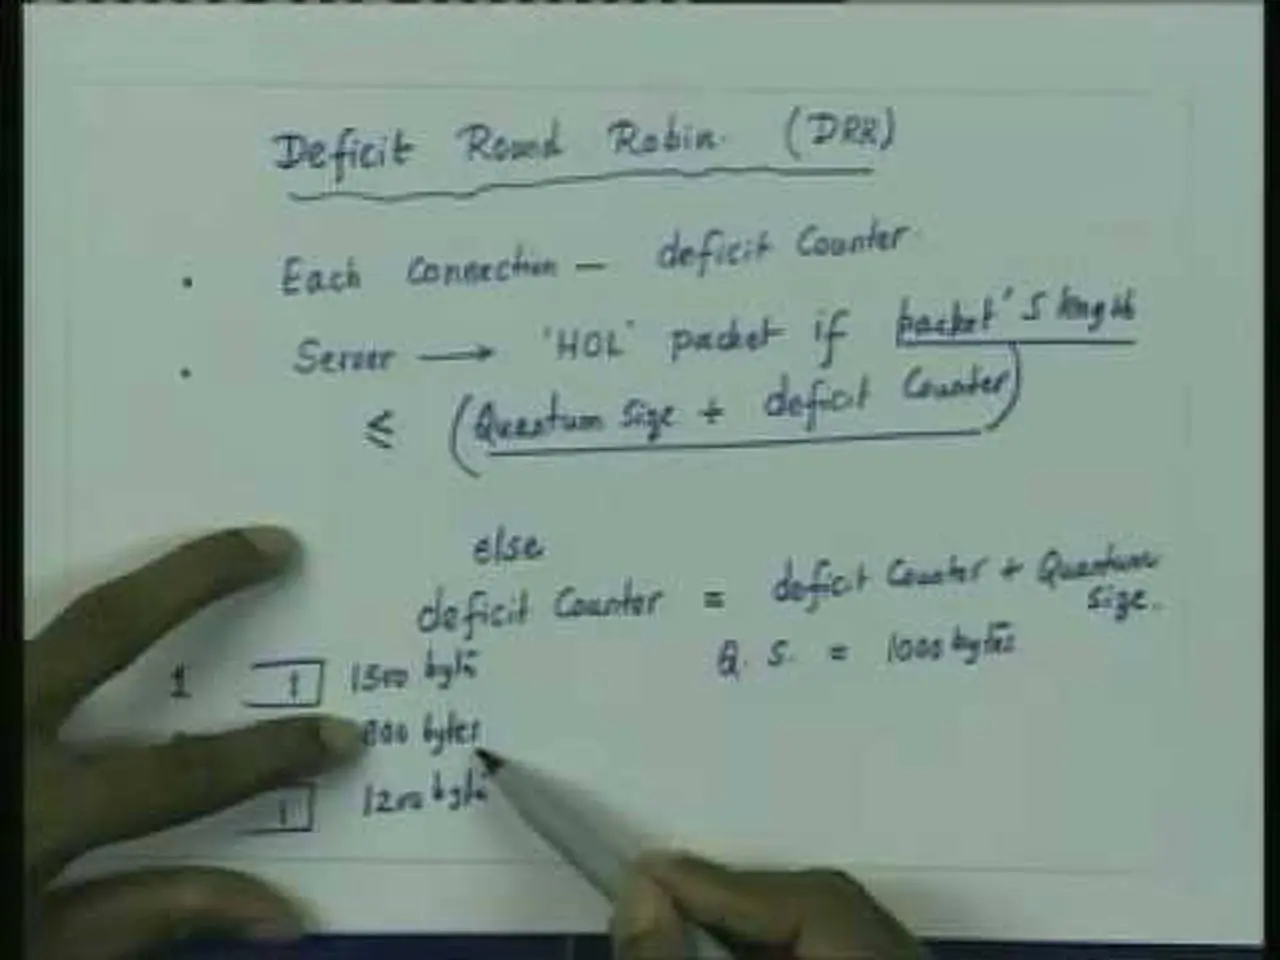 Deficit Round Robin. (DRR)
. Each Connection — deficit Counter.
. Server → 'HOL' packet if packet's length
≤ (Quantum Size + deficit Counter)
else
deficit Counter = deficit Counter + Quantum
size.
Q. S. = 1000 bytes
1 1 1500 byte
800 bytes
1 1200 byte